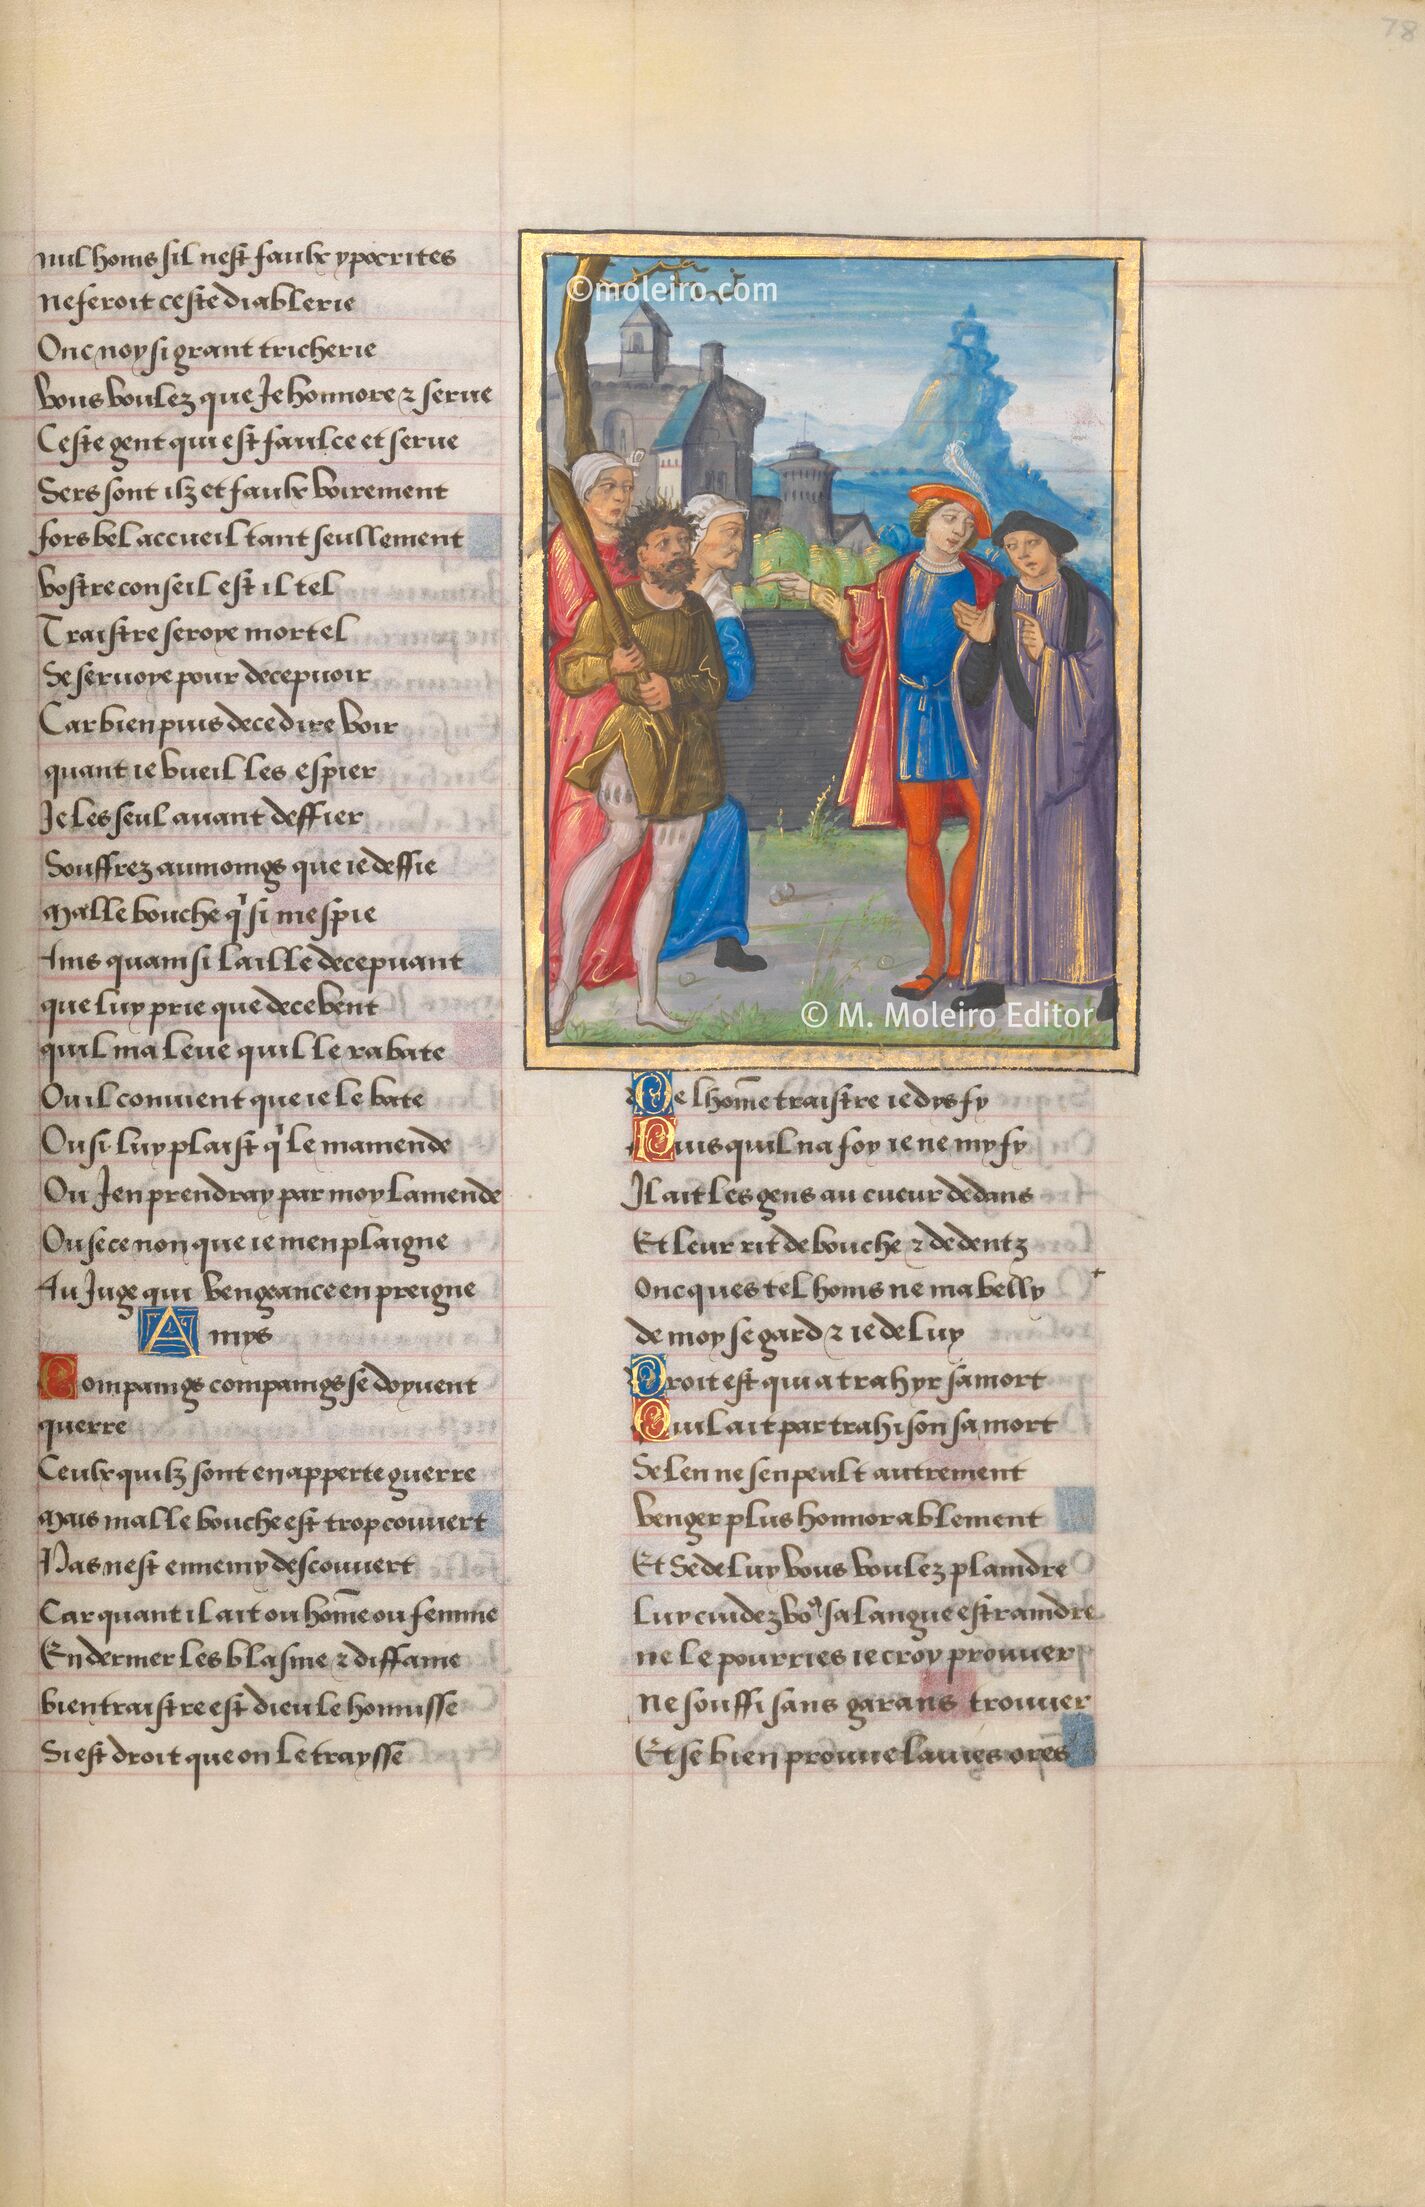 78
nul homs sil nest faulx ypocrites
Ne feroit ceste diablerie
Onc noy si grant tricherie
Vous voulez que Je honnore ⁊ serue
Ceste gent qui est faulce et serue
Sers sont ilz et faulx voirement
fors bel accueil tant seullement
vostre conseil est il tel
Traistre seroye mortel
Se seruoye pour decepuoir
Car bien puis de ce dire voir
quant ie vueil les espier
Je les seul auant deffier
Souffrez aumoings que ie deffie
Malle bouche q' si mespie
Ains quainsi laille decepuant
que luy prie que de ce vent
quil ma leue quil le rabate
Ou il conuient que ie le bate
Ou si luy plaist q' le mamende
Ou Jen prendray par moy lamende
Ou se ce non que ie men plaigne
Au Juge qui vengeance en preigne
Amys
Compaings compaings se doyuent
querre
Ceulx quilz sont en apperte guerre
Mais malle bouche est trop couuert
Pas nest ennemy descouuert
Car quant il ait ou hom̄e ou femme
En dernier les blasme ⁊ diffame
bien traistre est dieu le honnisse
Si est droit que on le traysse
©moleiro.com
© M. Moleiro Editor
De lhom̄e traistre ie dys fy
Puis quil na foy ie ne my fy
Il ait les gens au cueur dedans
Et leur rit de bouche ⁊ de dentz
Oncques tel homs ne mabelly
de moy se gard ⁊ ie de luy
Droit est qui a trahyr sa mort
Quil ait par trahison sa mort
Se len ne sen peult autrement
venger plus honnorablement
Et Se de luy vous voulez plaindre
Luy cuidez vo9 sa langue estraindre
ne le pourries ie croy prouuer
Ne souffisans garans trouuer
Et se bien prouue lauies ores